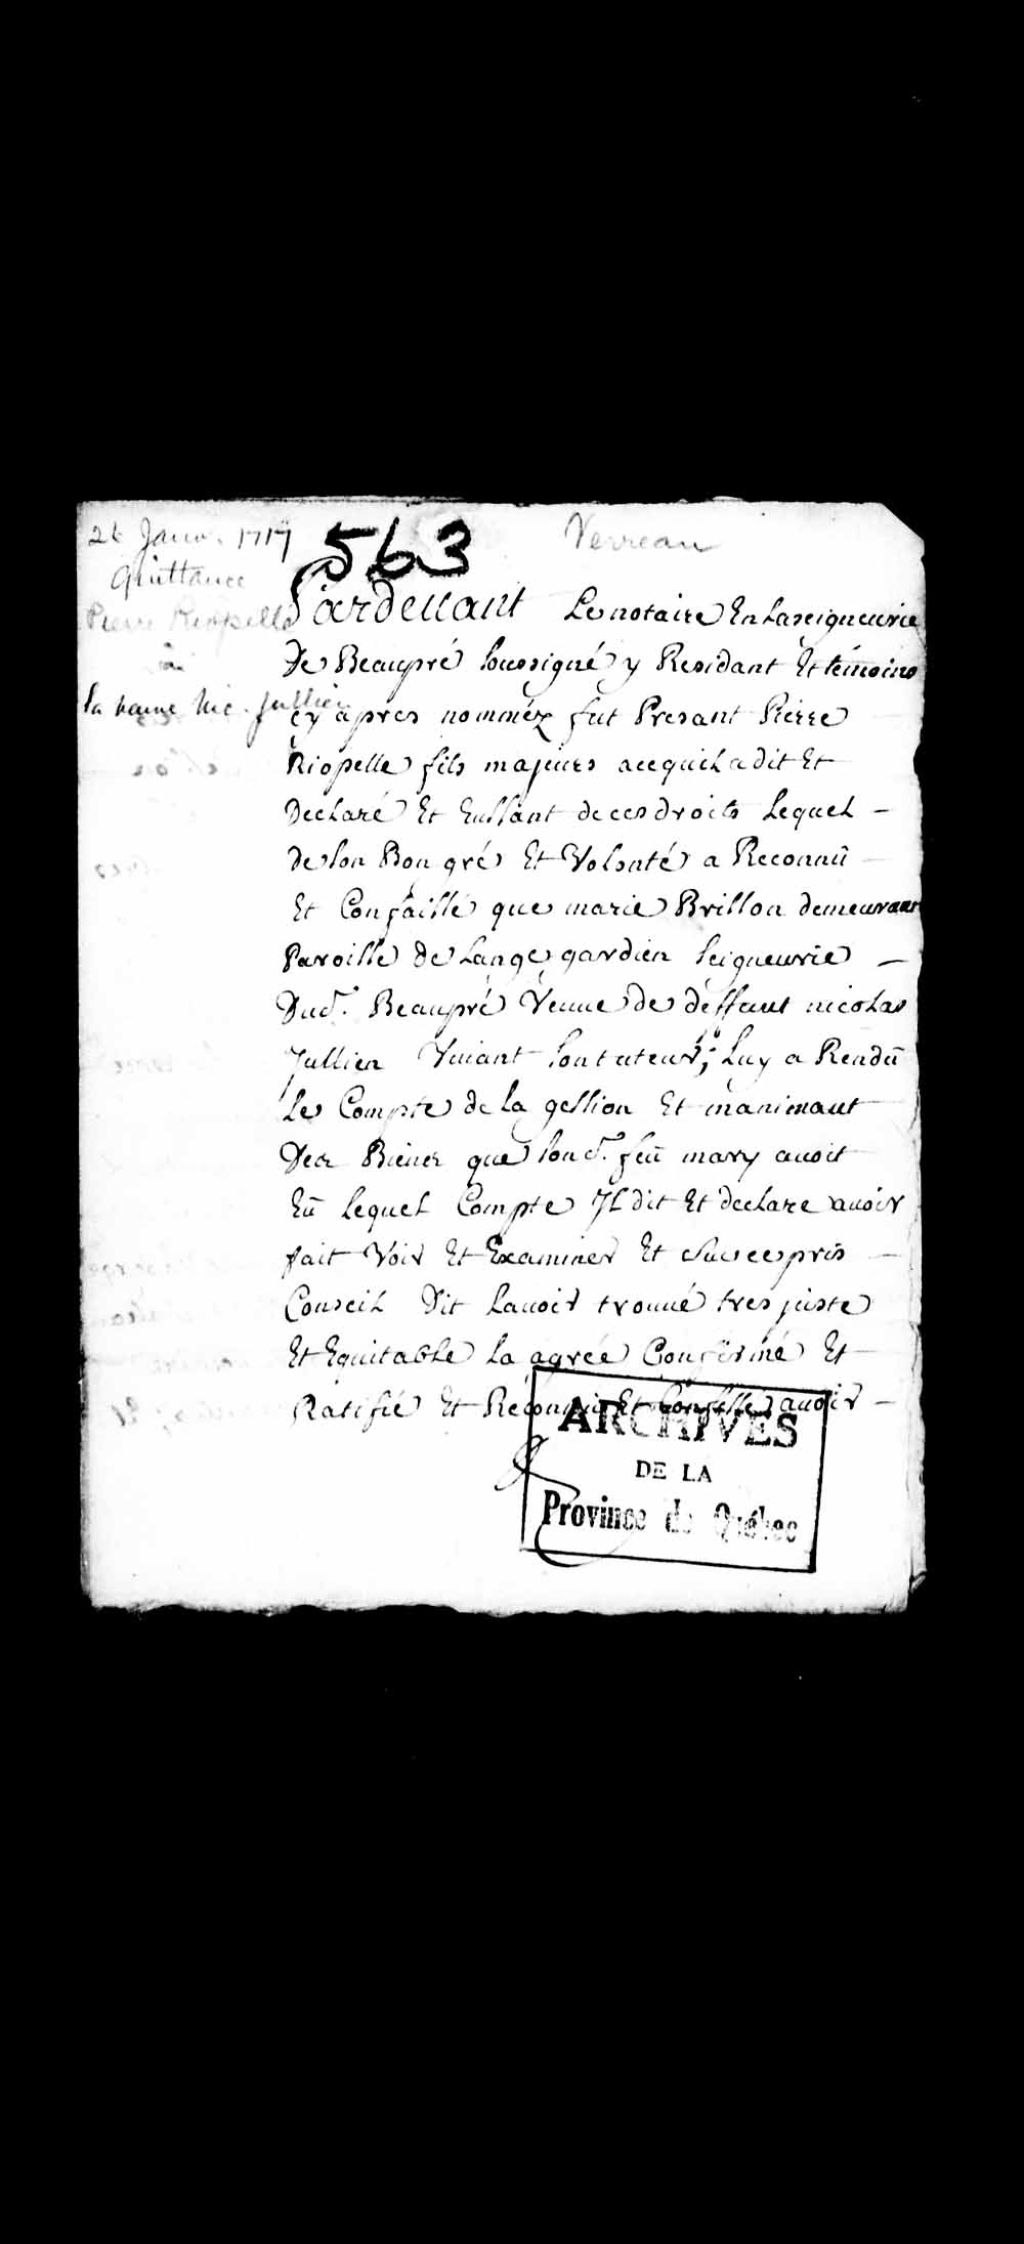 26 Janv. 1717
563
Verreau
Quittance
Pierre Riopelle
à
la veuve Nic. Jullien
Pardevant Le notaire En Laseigneurie
De Beaupré soussigné y Residant Et témoins
cy apres nommez fut Presant Pierre
Riopelle fils majeurs acequil a dit Et
Declaré Et Eussant de ces droits Lequel -
de son Bon gré Et Volonté a Reconnû
Et Confaissé que marie Brillon demeurant
Paroisse De Lange gardien seigneurie -
Dud. Beaupré Veuve de deffunt nicolas
Jullien Vivant son tuteur, Luy a Rendû
Le Compte de La gestion Et maniment
Des Biens que sond. feû mary avoit
Eû Lequel Compte Il dit Et declare avoir
fait Voir Et Examiner Et sur ce pris -
Conseil Dit Lavoir trouvé tres juste
Et Equitable La agréé Confirmé Et
Ratifié Et Reconnu Et Confesse avoir -
ARCHIVES
DE LA
Province de Québec